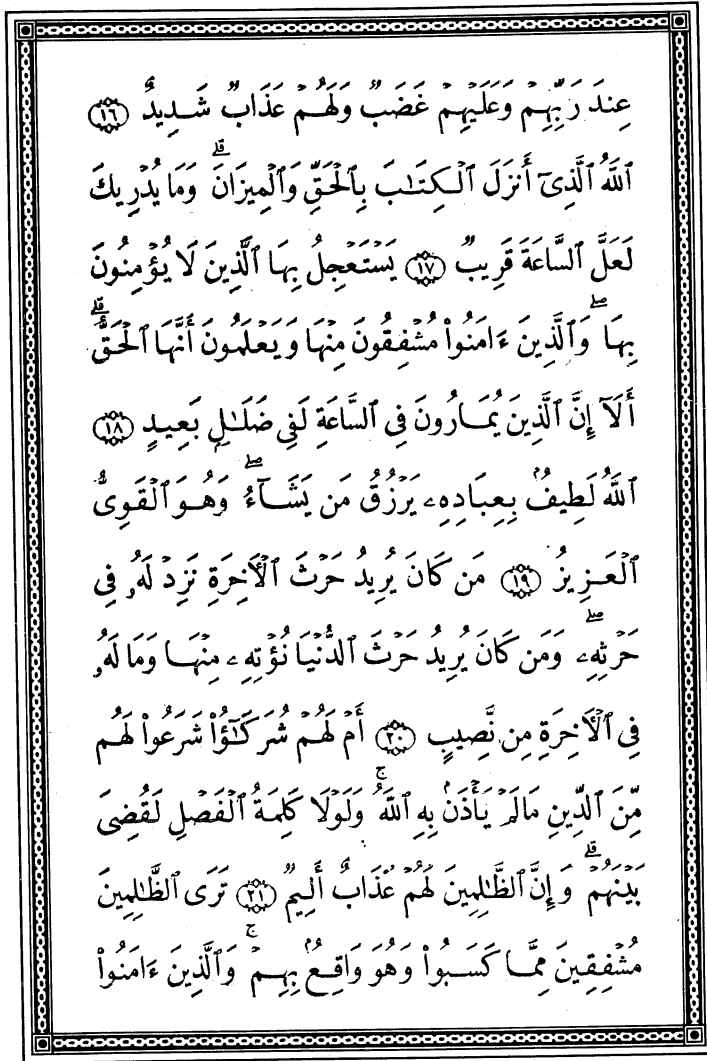 عِندَ رَبِّهِمْ وَعَلَيْهِمْ غَضَبٌ وَلَهُمْ عَذَابٌ شَدِيدٌ ﴿١٦﴾
ٱللَّهُ ٱلَّذِىٓ أَنزَلَ ٱلْكِتَٰبَ بِٱلْحَقِّ وَٱلْمِيزَانَ ۗ وَمَا يُدْرِيكَ
لَعَلَّ ٱلسَّاعَةَ قَرِيبٌ ﴿١٧﴾ يَسْتَعْجِلُ بِهَا ٱلَّذِينَ لَا يُؤْمِنُونَ
بِهَا ۖ وَٱلَّذِينَ ءَامَنُوا۟ مُشْفِقُونَ مِنْهَا وَيَعْلَمُونَ أَنَّهَا ٱلْحَقُّ ۗ
أَلَآ إِنَّ ٱلَّذِينَ يُمَارُونَ فِى ٱلسَّاعَةِ لَفِى ضَلَٰلٍۭ بَعِيدٍ ﴿١٨﴾
ٱللَّهُ لَطِيفٌۢ بِعِبَادِهِۦ يَرْزُقُ مَن يَشَآءُ ۖ وَهُوَ ٱلْقَوِىُّ
ٱلْعَزِيزُ ﴿١٩﴾ مَن كَانَ يُرِيدُ حَرْثَ ٱلْأَخِرَةِ نَزِدْ لَهُۥ فِى
حَرْثِهِۦ ۖ وَمَن كَانَ يُرِيدُ حَرْثَ ٱلدُّنْيَا نُؤْتِهِۦ مِنْهَا وَمَا لَهُۥ
فِى ٱلْأَخِرَةِ مِن نَّصِيبٍ ﴿٢٠﴾ أَمْ لَهُمْ شُرَكَٰٓؤُا۟ شَرَعُوا۟ لَهُم
مِّنَ ٱلدِّينِ مَا لَمْ يَأْذَنۢ بِهِ ٱللَّهُ ۚ وَلَوْلَا كَلِمَةُ ٱلْفَصْلِ لَقُضِىَ
بَيْنَهُمْ ۗ وَإِنَّ ٱلظَّٰلِمِينَ لَهُمْ عَذَابٌ أَلِيمٌ ﴿٢١﴾ تَرَى ٱلظَّٰلِمِينَ
مُشْفِقِينَ مِمَّا كَسَبُوا۟ وَهُوَ وَاقِعٌۢ بِهِمْ ۗ وَٱلَّذِينَ ءَامَنُوا۟